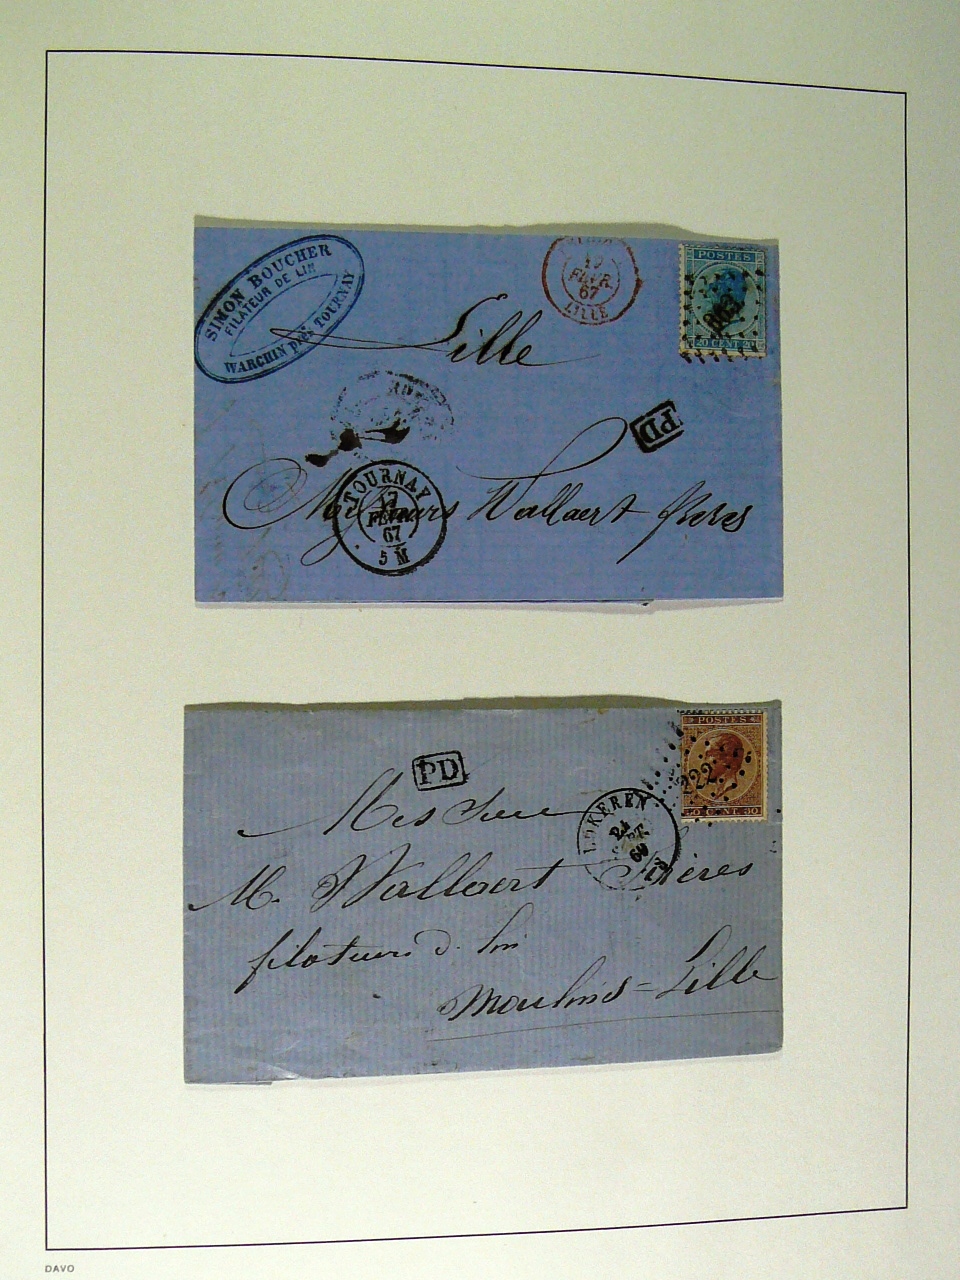 SIMON BOUCHER
FILATEUR DE LIN
WARCHIN PRÈS TOURNAY
17
FEVR.
67
LILLE
POSTES
20 CENT 20
Lille
PD
TOURNAY
17
FEVR
67
5 M
Messieurs Wallaert frères
POSTES
30 CENT 30
222
PD
LOKEREN
24
SEPT.
Messieurs
M. Wallaert Frères
filateurs d. lin
Moulins=Lille
DAVO